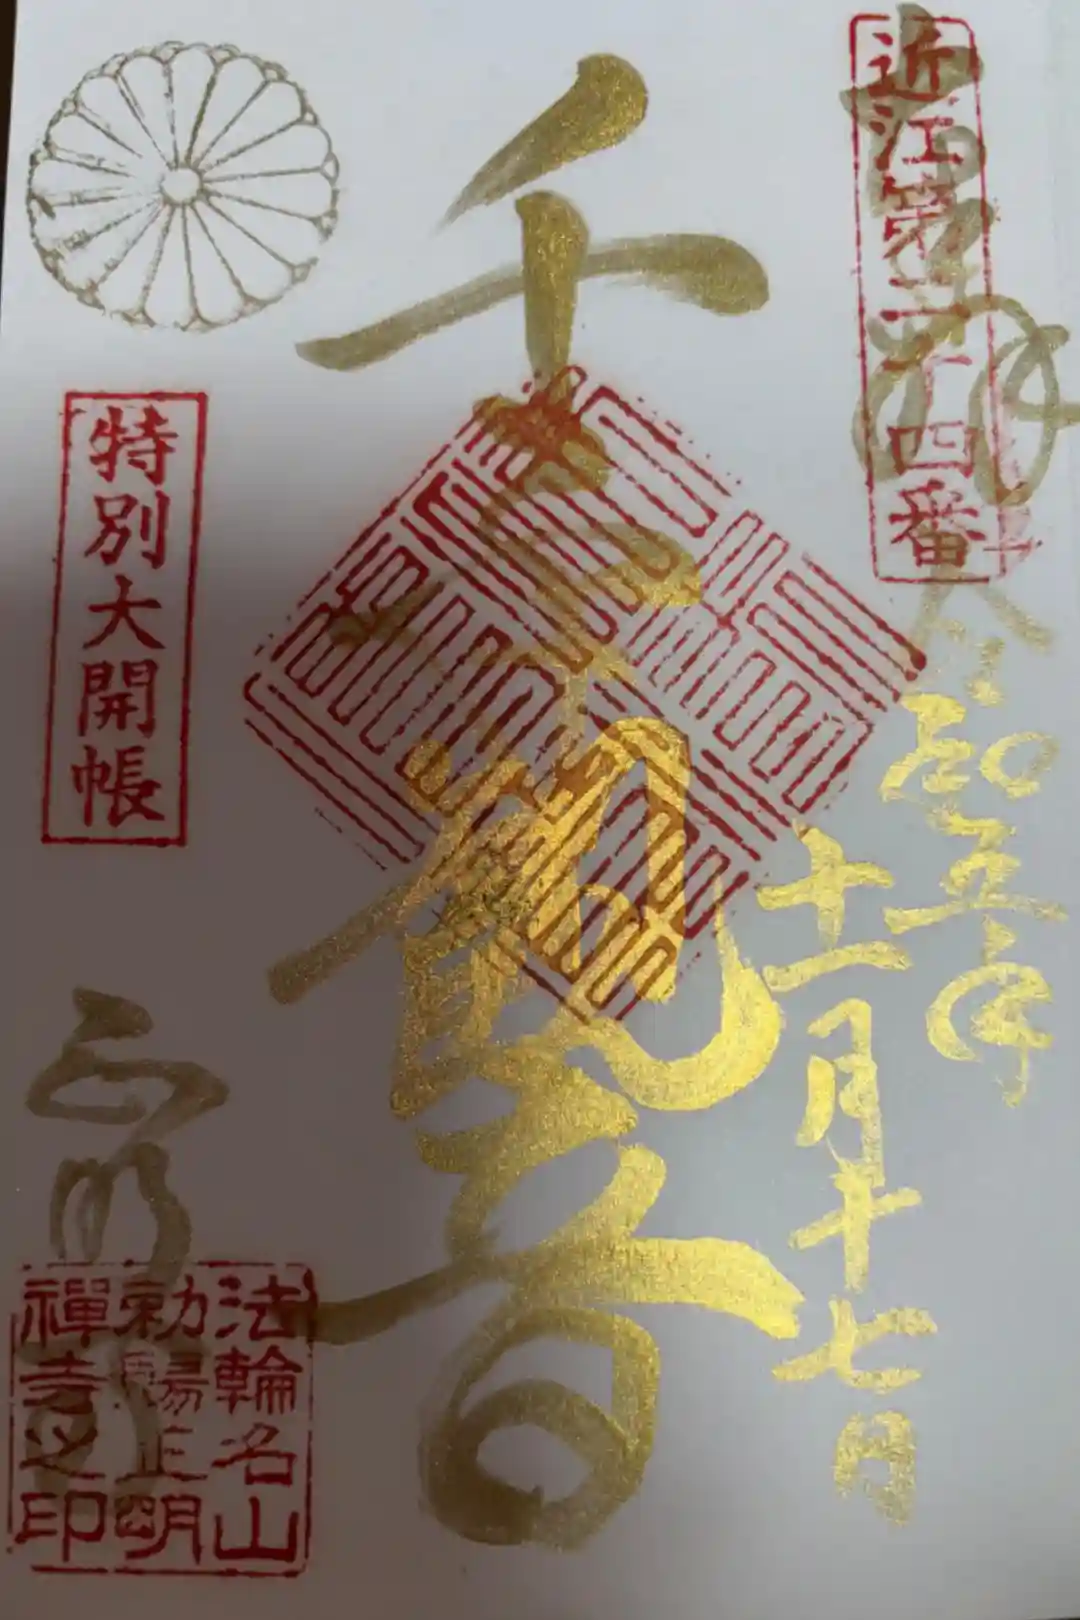 近江第二十四番
奉拝
令和五年
十一月十七日
千手観音
特別大開帳
正明寺
法輪名山
勅賜正明
禅寺之印